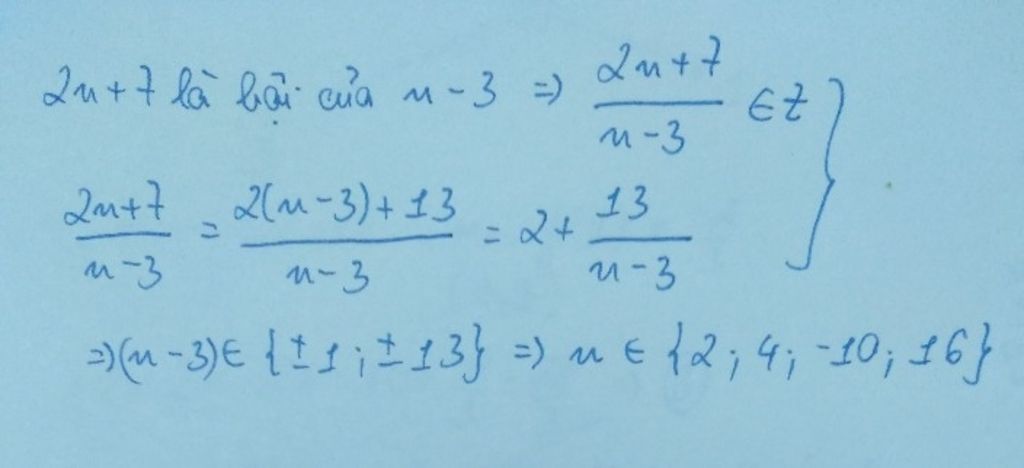 2n+7 là bội của n-3 => (2n+7)/(n-3) ∈ Z }
(2n+7)/(n-3) = (2(n-3)+13)/(n-3) = 2 + 13/(n-3)
=> (n-3) ∈ {±1; ±13} => n ∈ {2; 4; -10; 16}